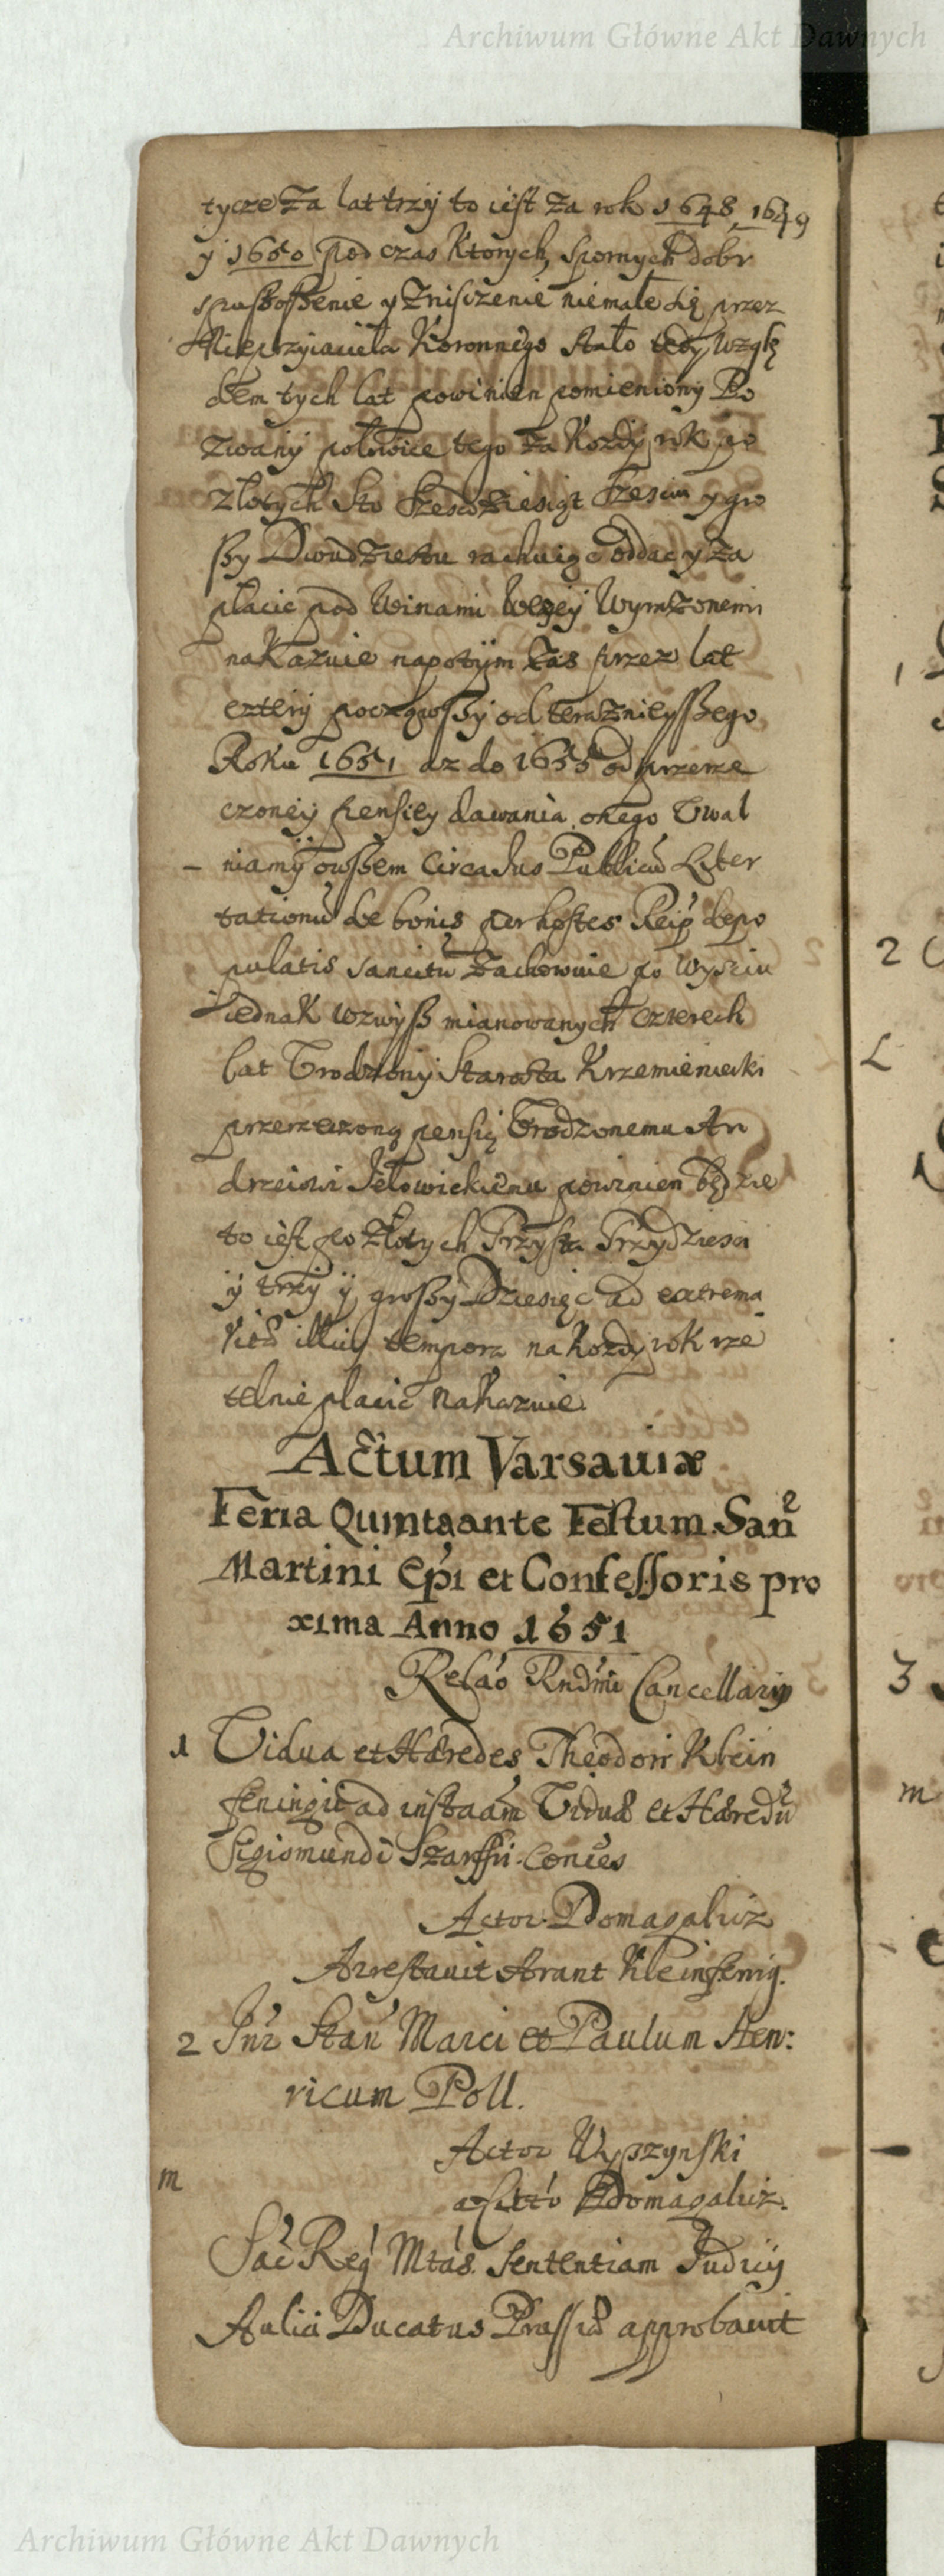 Archiwum Główne Akt Dawnych
tycze za lat trzy to iest za rok 1648, 1649
y 1650 pod czas ktorych, spornych dobr
spustoszenie y zniszczenie niemałe się przez
Nieprzyiaciela Koronnego stało tedy wzglę
dem tych lat powinien pomieniony Po
zwany połowice tego za kozdy rok po
złotych sto szescdziesiąt szesciu y gro
szy Dwudziestu rachuiąc oddac y za
płacic pod winami wyzey wyrazonemi
nakazuie napotym zas przez lat
cztery począwszy od teraznieyszego
Roku 1651 az do 1655 od przerze
czoney pensiey dawania onego Uwal
niamy owszem Circa Jus Publicu
tationu de bonis per hostes Reip depo
pulatis sancitu zachowuie po wysciu
iednak wzwysz mianowanych czterech
lat Urodzony Starosta Krzemieniecki
przerzeczoną pensią Urodzonemu An
drzeiowi Jełowickiemu powinien będzie
to iest po złotych Trzysta Trzydziesci
y trzy y groszy Dziesięc ad extrema
vitæ illius tempora na kozdy rok rze
telnie płacic nakazuie
Actum Varsauiæ
Feria Quinta ante Festum San
Martini Epi et Confessoris pro
xima Anno 1651
Relao Rndmi Cancellarij
1 Vidua et Hæredes Theodori Klein
feningii ad instaam Viduæ et Hæredu
Sigismundi Szarffii Conies
Actor Domagalicz
Arrestauit Arant Kleinfenig.
2 Inr Stan Marci et Paulum Hen:
ricum Poll.
Actor Wyszynski
a Citto Domagalicz.
m
Sac Reg Mtas. sententiam Judicij
Aulici Ducatus Prussiæ approbauit
2
L
3
m
Archiwum Główne Akt Dawnych